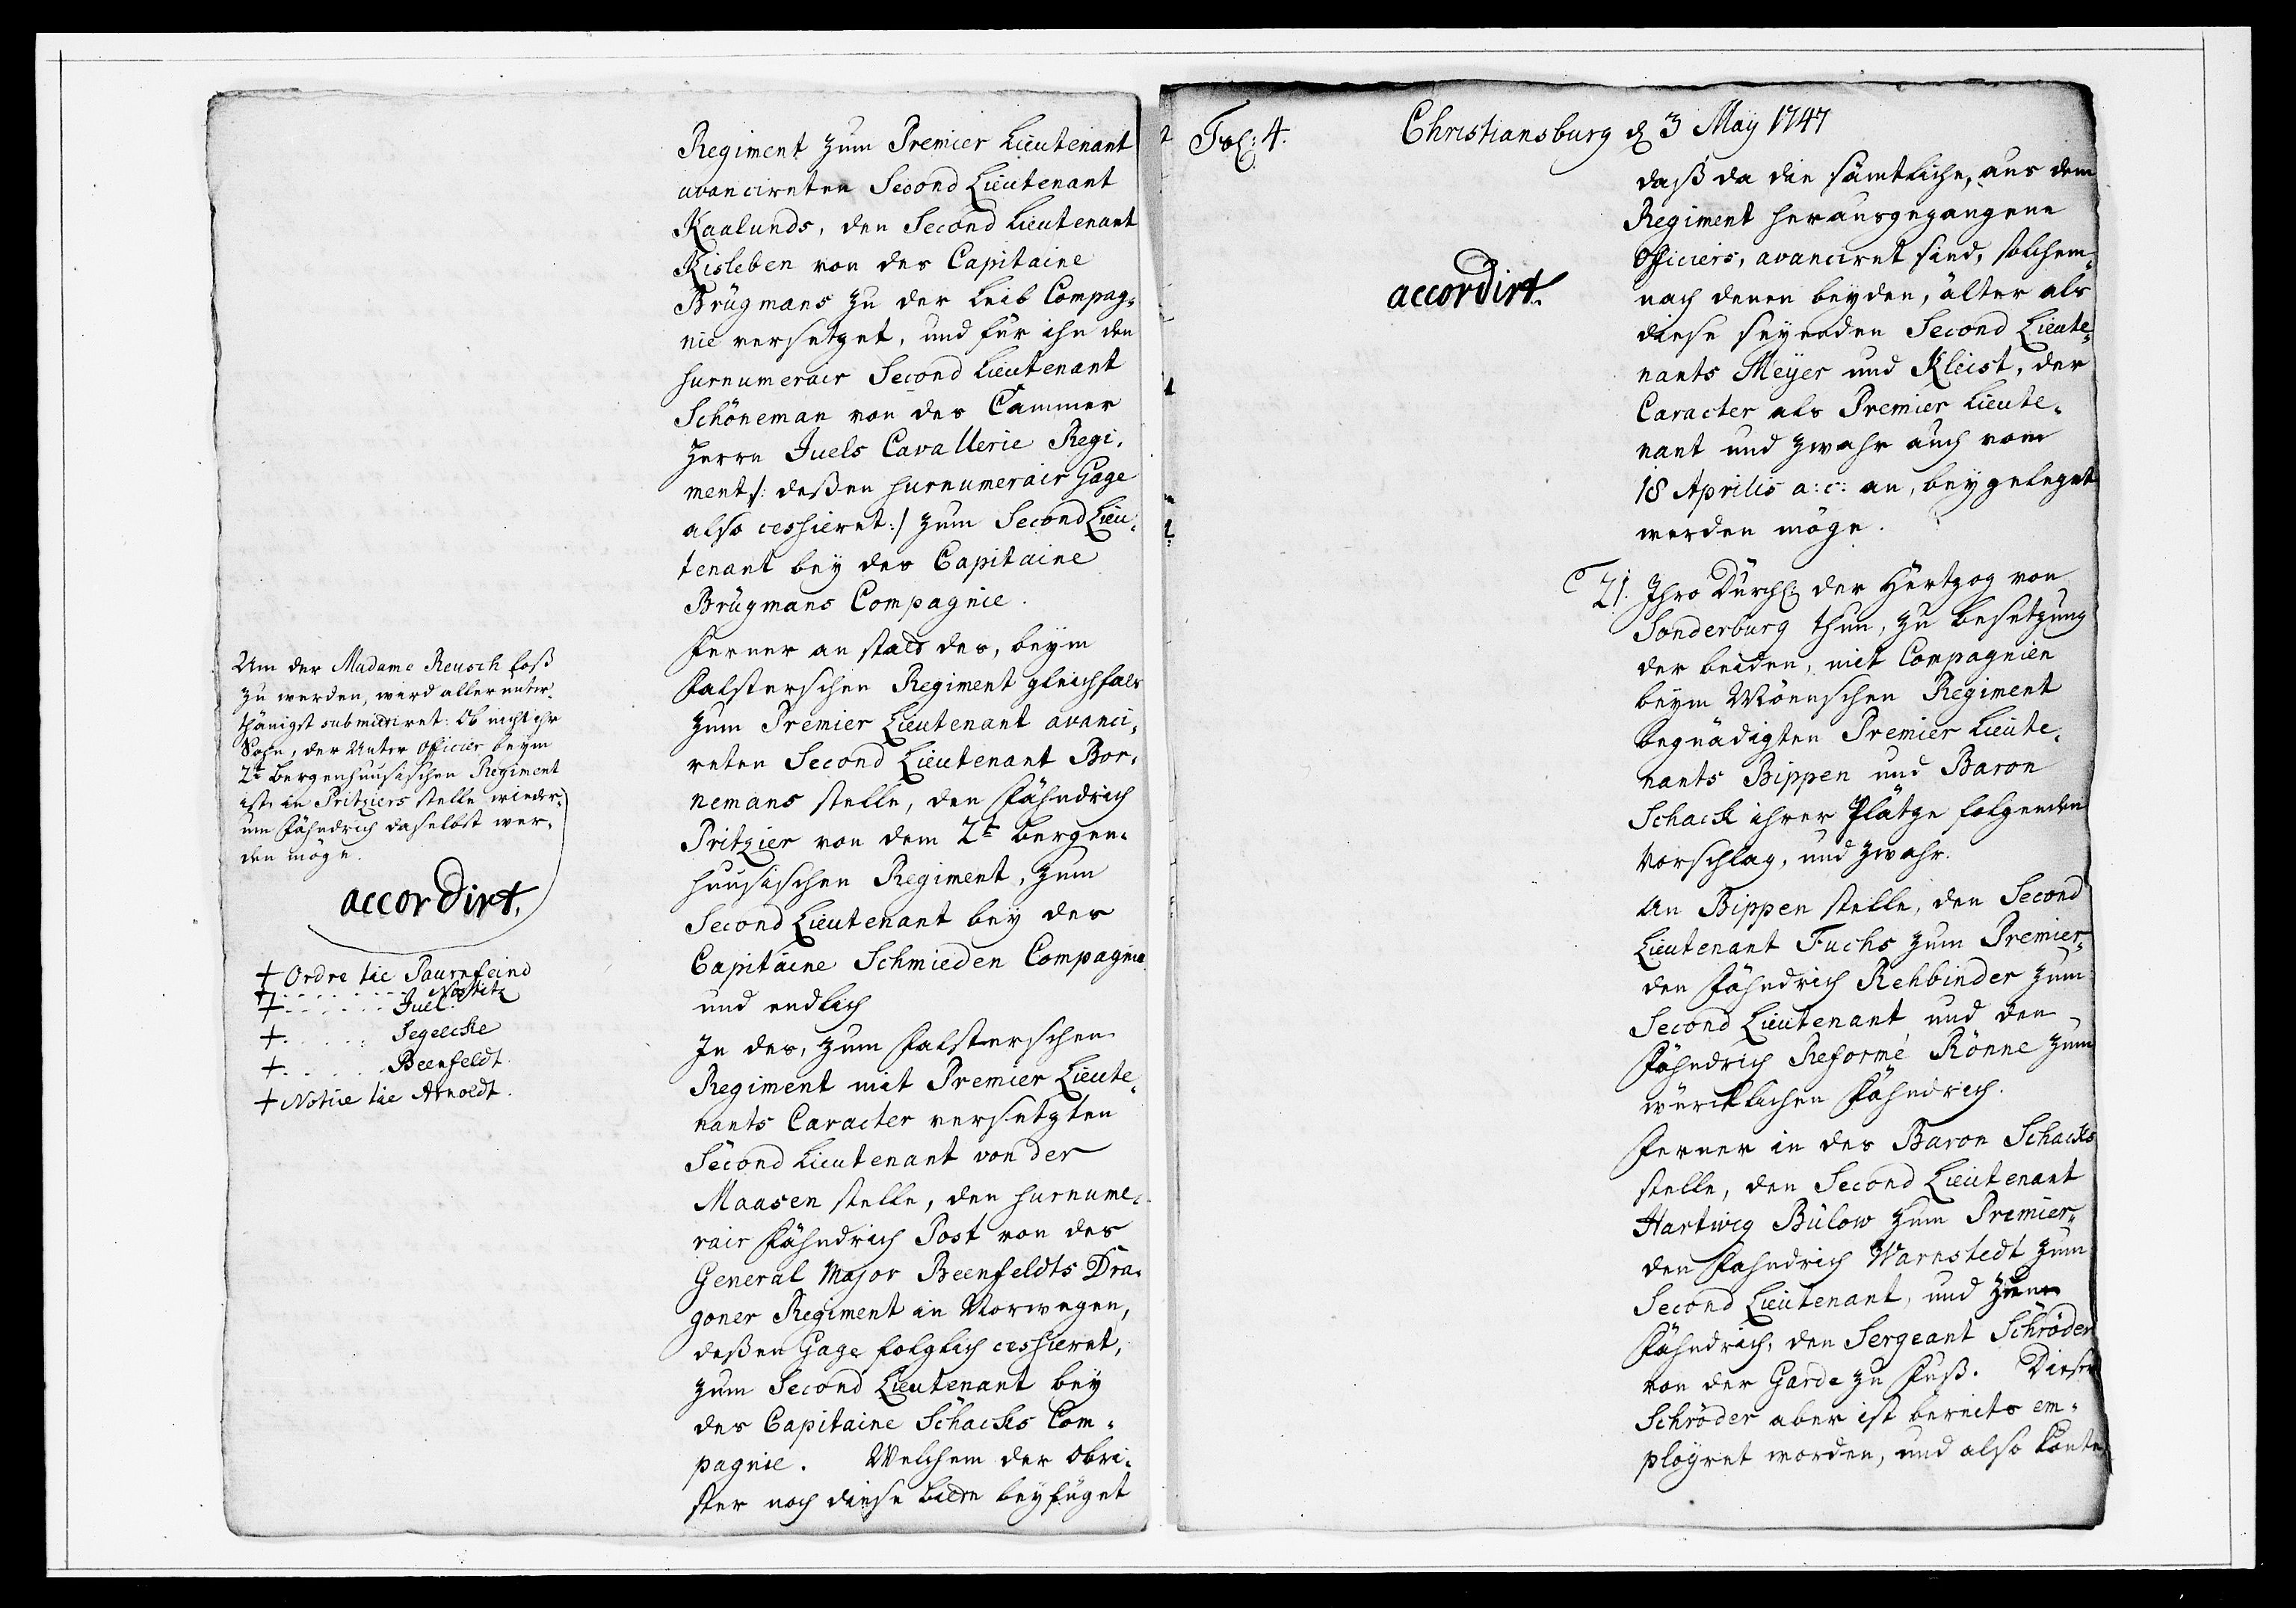 Regiment zum Premier Lieutenant
avancireten Second Lieutenant
Kaalunds, den Second Lieutenant
Kisleben von des Capitaine
Brügmans zu der Leib Compag¬
nie versetzet, und für ihn den
surnumerair Second Lieutenant
Schöneman von des Cammer
Herrn Juels Cavallerie Regi¬
ment /: deßen surnumerair Gage
also cessieret :/ zum Second Lieu¬
tenant bey des Capitaine
Brügmans Compagnie.
Ferner an statt des, beym
Falsterschen Regiment gleichfals
zum Premier Lieutenant avanci¬
reten Second Lieutenant Bor¬
nemans stelle, den Fähndrich
Pritzier von dem 2t Bergen¬
huusischen Regiment, zum
Second Lieutenant bey des
Capitaine Schmieden Compagnie
und endlich
In des, zum Falsterschen
Regiment mit Premier Lieute¬
nants Caracter versetzten
Second Lieutenant von der
Maasen stelle, den surnume¬
rair Fähndrich Post von des
General Major Beenfeldts Dra¬
goner Regiment in Norwegen,
deßen Gage folglich cessieret,
zum Second Lieutenant bey
des Capitaine Schacks Com¬
pagnie. Welchem der Obri¬
ster noch diese bitte beyfüget
Um der Madame Reusch loß
zu werden, wird allerunter¬
thänigst submittiret: Ob nicht ihr
Sohn, der Unter Officier beym
2t Bergenhuusischen Regiment
ist, in Pritziers stelle wieder¬
um Fähndrich daselbst wer¬
den möge.
accordirt.
+ Ordre tie Paurnfeind
+ . . . . . . . . Nostitz
+ . . . . . . Juel
+ . . . . . Segelcke
+ . . . . . Beenfeldt
+ Notice tie Arnoldt.
Fol: 4.
Christiansburg d 3 May 1747
daß da die sämtliche, aus dem
Regiment herausgegangene
Officiers, avanciret sind, solchem¬
nach denen beyden, älter als
diese seyenden Second Lieute¬
nants Meyer und Kleist, der
Caracter als Premier Lieute¬
nant und zwahr auch vom
18 Aprilis a: c: an, beygeleget
werden möge.
accordirt.
21. Ihro Durchl: der Hertzog von
Sonderburg thun, zu besetzung
der beiden, mit Compagnien
beym Möenschen Regiment
begnädigten Premier Lieute¬
nants Bippen und Baron
Schack ihrer Plätze folgenden
Vorschlag, und zwahr.
An Bippen stelle, den Second
Lieutenant Fuchs zum Premier¬
den Fähndrich Rehbinder zum
Second Lieutenant und den
Fähndrich Reformé Rönne zum
würcklichen Fähndrich.
Ferner in des Baron Schacks
stelle, den Second Lieutenant
Hartwig Bülow zum Premier¬
den Fähndrich Warnstedt zum
Second Lieutenant, und zum
Fähndrich, den Sergeant Schröder
von der Garde zu Fuß. Dieser
Schröder aber ist bereits em¬
ployret worden, und also könte